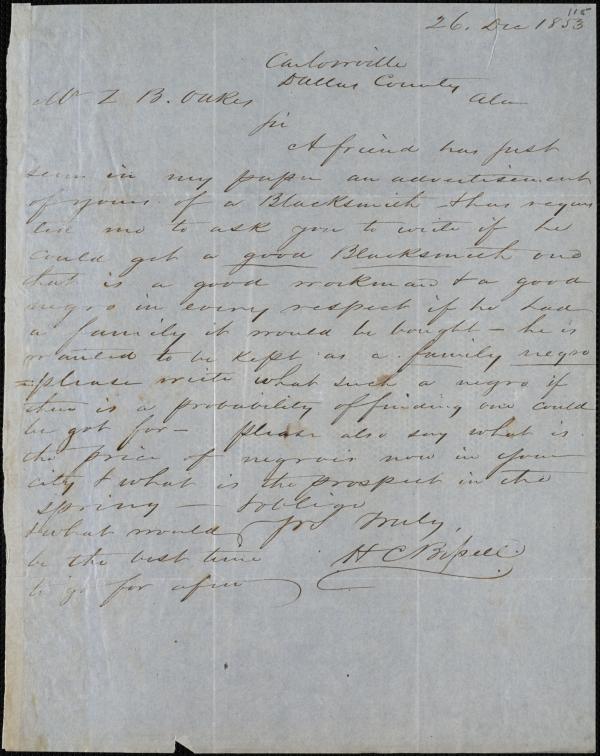 115
26. Dec 1853
Carlowville
Dallas County
Ala
Mr Z B. Oakes
Sir
A friend has just
seen in my paper an advertisement
of yours of a Blacksmith & has reques
ted me to ask you to write if he
could get a good Blacksmith one
that is a good workman & a good
negro in every respect if he had
a family it would be bought – he is
wanted to be kept as a family negro
– please write what such a negro if
there is a probability of finding one could
be got for – please also say what is
the price of negroes now in your
city & what is the prospect in the
spring – & oblige
& what would yrs truly,
be the best time H C Bissell
to go for a few